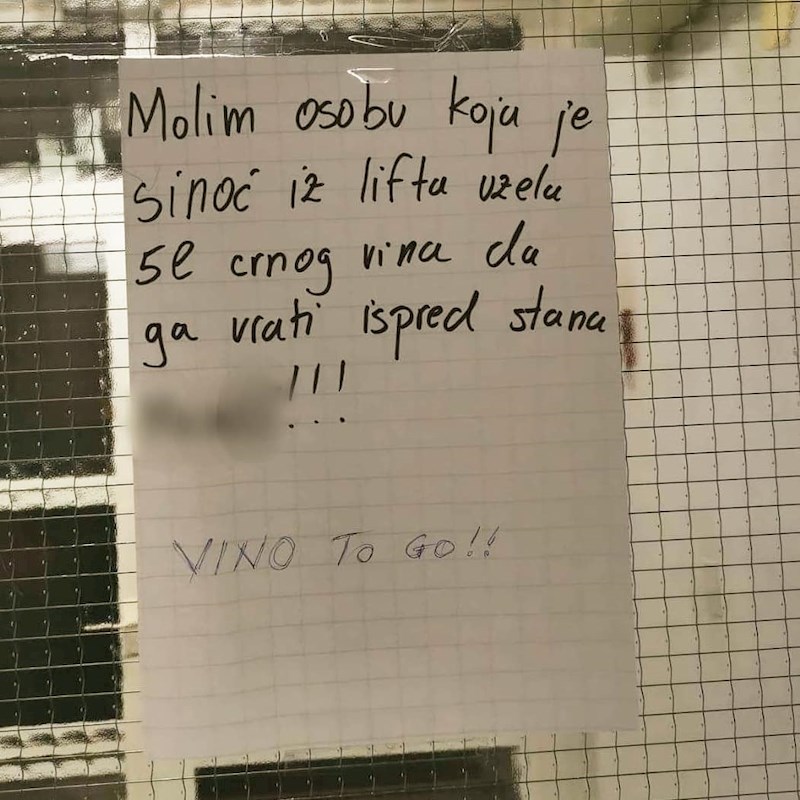 Molim osobu koja je
sinoć iz lifta uzela
5l crnog vina da
ga vrati ispred stana
!!!
VINO To Go!!